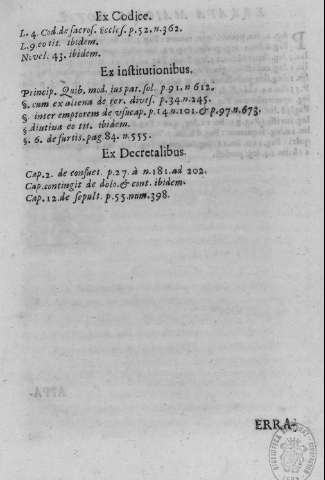 Ex Codice.
L. 4. Cod. de sacros. Eccles. p. 52. n. 362.
L. 9. eo tit. ibidem.
Novel. 43. ibidem.
Ex institutionibus.
Princip. Quib. mod. ius pat. sol. p 91. n 612.
§. cum ex aliena de rer. divis. p. 34 n. 245.
§ inter emptorem de usucap. p. 14 n. 101. & p. 97 n. 673.
§ diutina eo tit. ibidem.
§. 6. de furtis. pag 84. n. 555.
Ex Decretalibus.
Cap. 2. de consuet. p. 27. à n. 181. ad 202.
Cap. contingit de dolo. & cont. ibidem.
Cap. 12. de sepult. p. 55. num. 398.
ERRA-